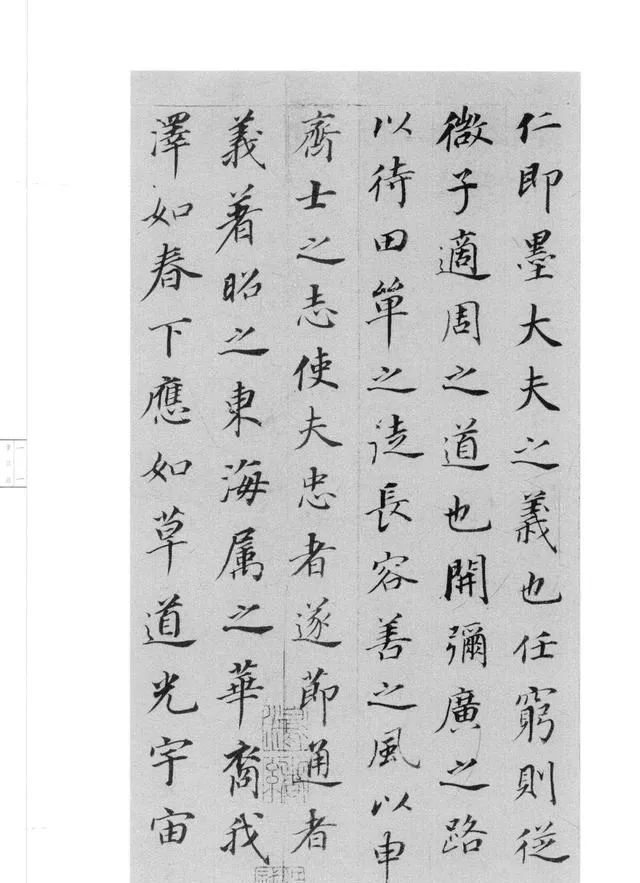 仁即墨大夫之義也任窮則從
微子適周之道也開彌廣之路
以待田單之徒長容善之風以申
齊士之志使夫忠者遂節通者
義著昭之東海属之華裔我
澤如春下應如草道光宇宙